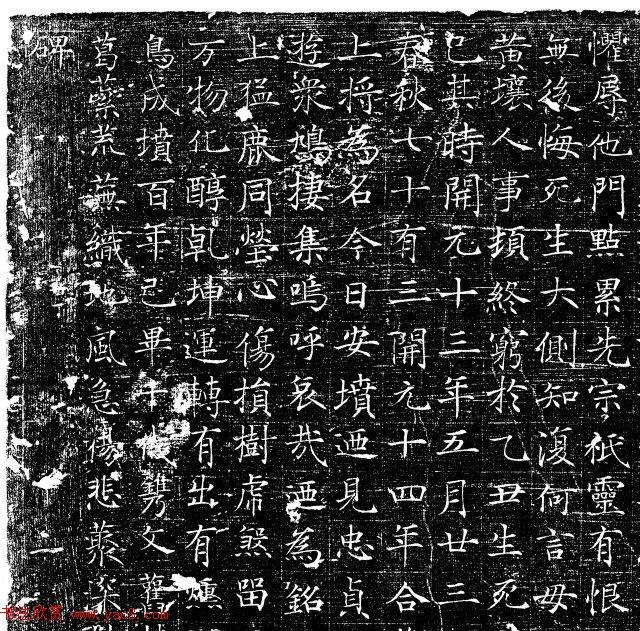 懼辱他門點累先宗祇靈有恨
無後悔死生大側知復何言毋
黄壤人事頓終窮於乙丑生死
已其時開元十三年五月廿三
春秋七十有三開元十四年合
上將為名今日安墳迺見忠貞
遊衆鳩捿集嗚呼哀哉迺為銘
上猛鹿同塋心傷損樹虎煞留
万物化醇乹坤運轉有出有
鳥成墳百年已畢十文
葛蘽荒蕪織地風急悲
碑
www.yac8.com